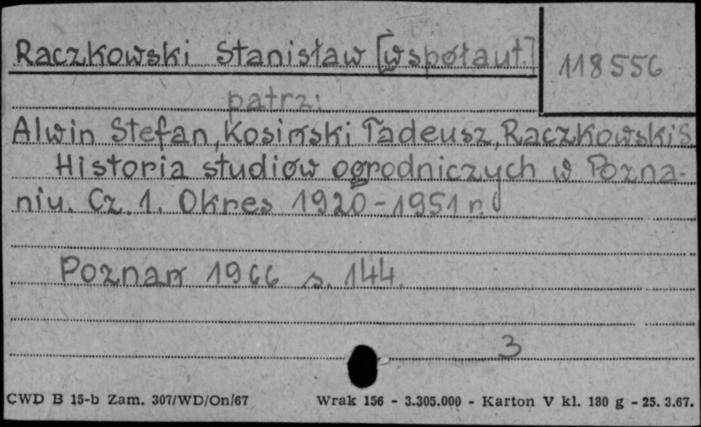 Raczkowski Stanisław [współaut.]
118556
patrz:
Alwin Stefan, Kosiński Tadeusz, Raczkowski S.
Historia studiów ogrodniczych w Pozna-
niu. Cz. 1. Okres 1920-1951 r.
Poznań 1966 s. 144.
3
CWD B 15-b Zam. 307/WD/On/67 Wrak 156 - 3.305.000 - Karton V kl. 180 g - 25. 3.67.